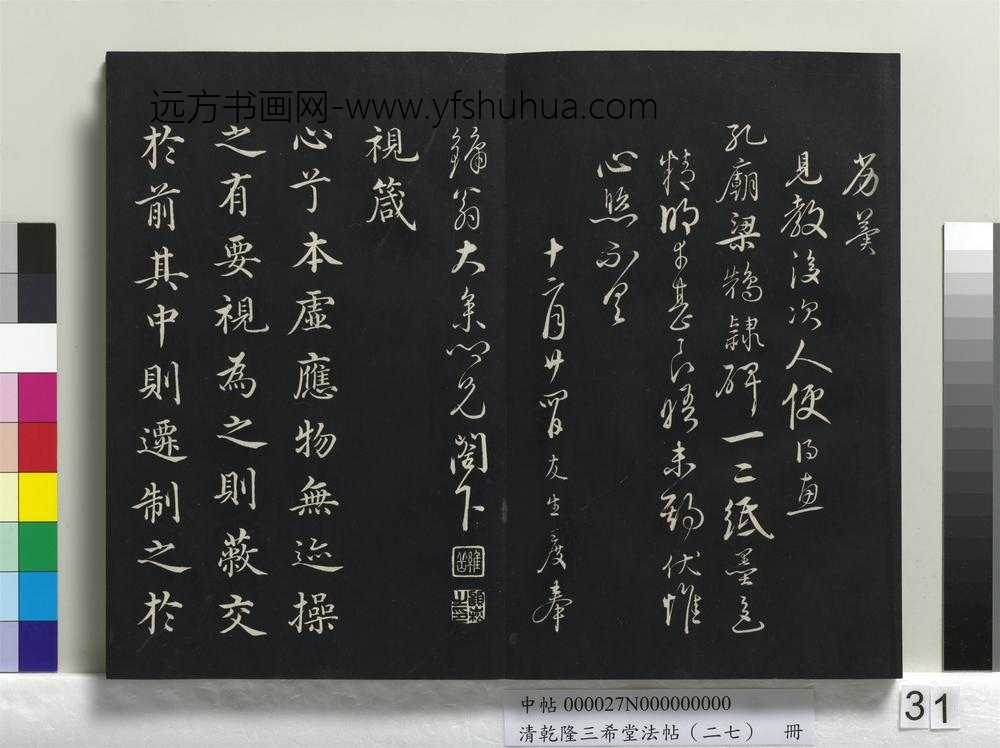 見教後次人便得惠
孔廟梁鵠隸碑一二紙墨色
精明甚良晤未期伏惟
心照不具
十二月廿四日友生度奉
翁大參門兄閣下
視箴
心兮本虛應物無迹操
之有要視為之則蔽交
於前其中則遷制之於
远方书画网-www.yfshuhua.com
中帖 000027N000000000
清乾隆三希堂法帖（二七） 冊
31